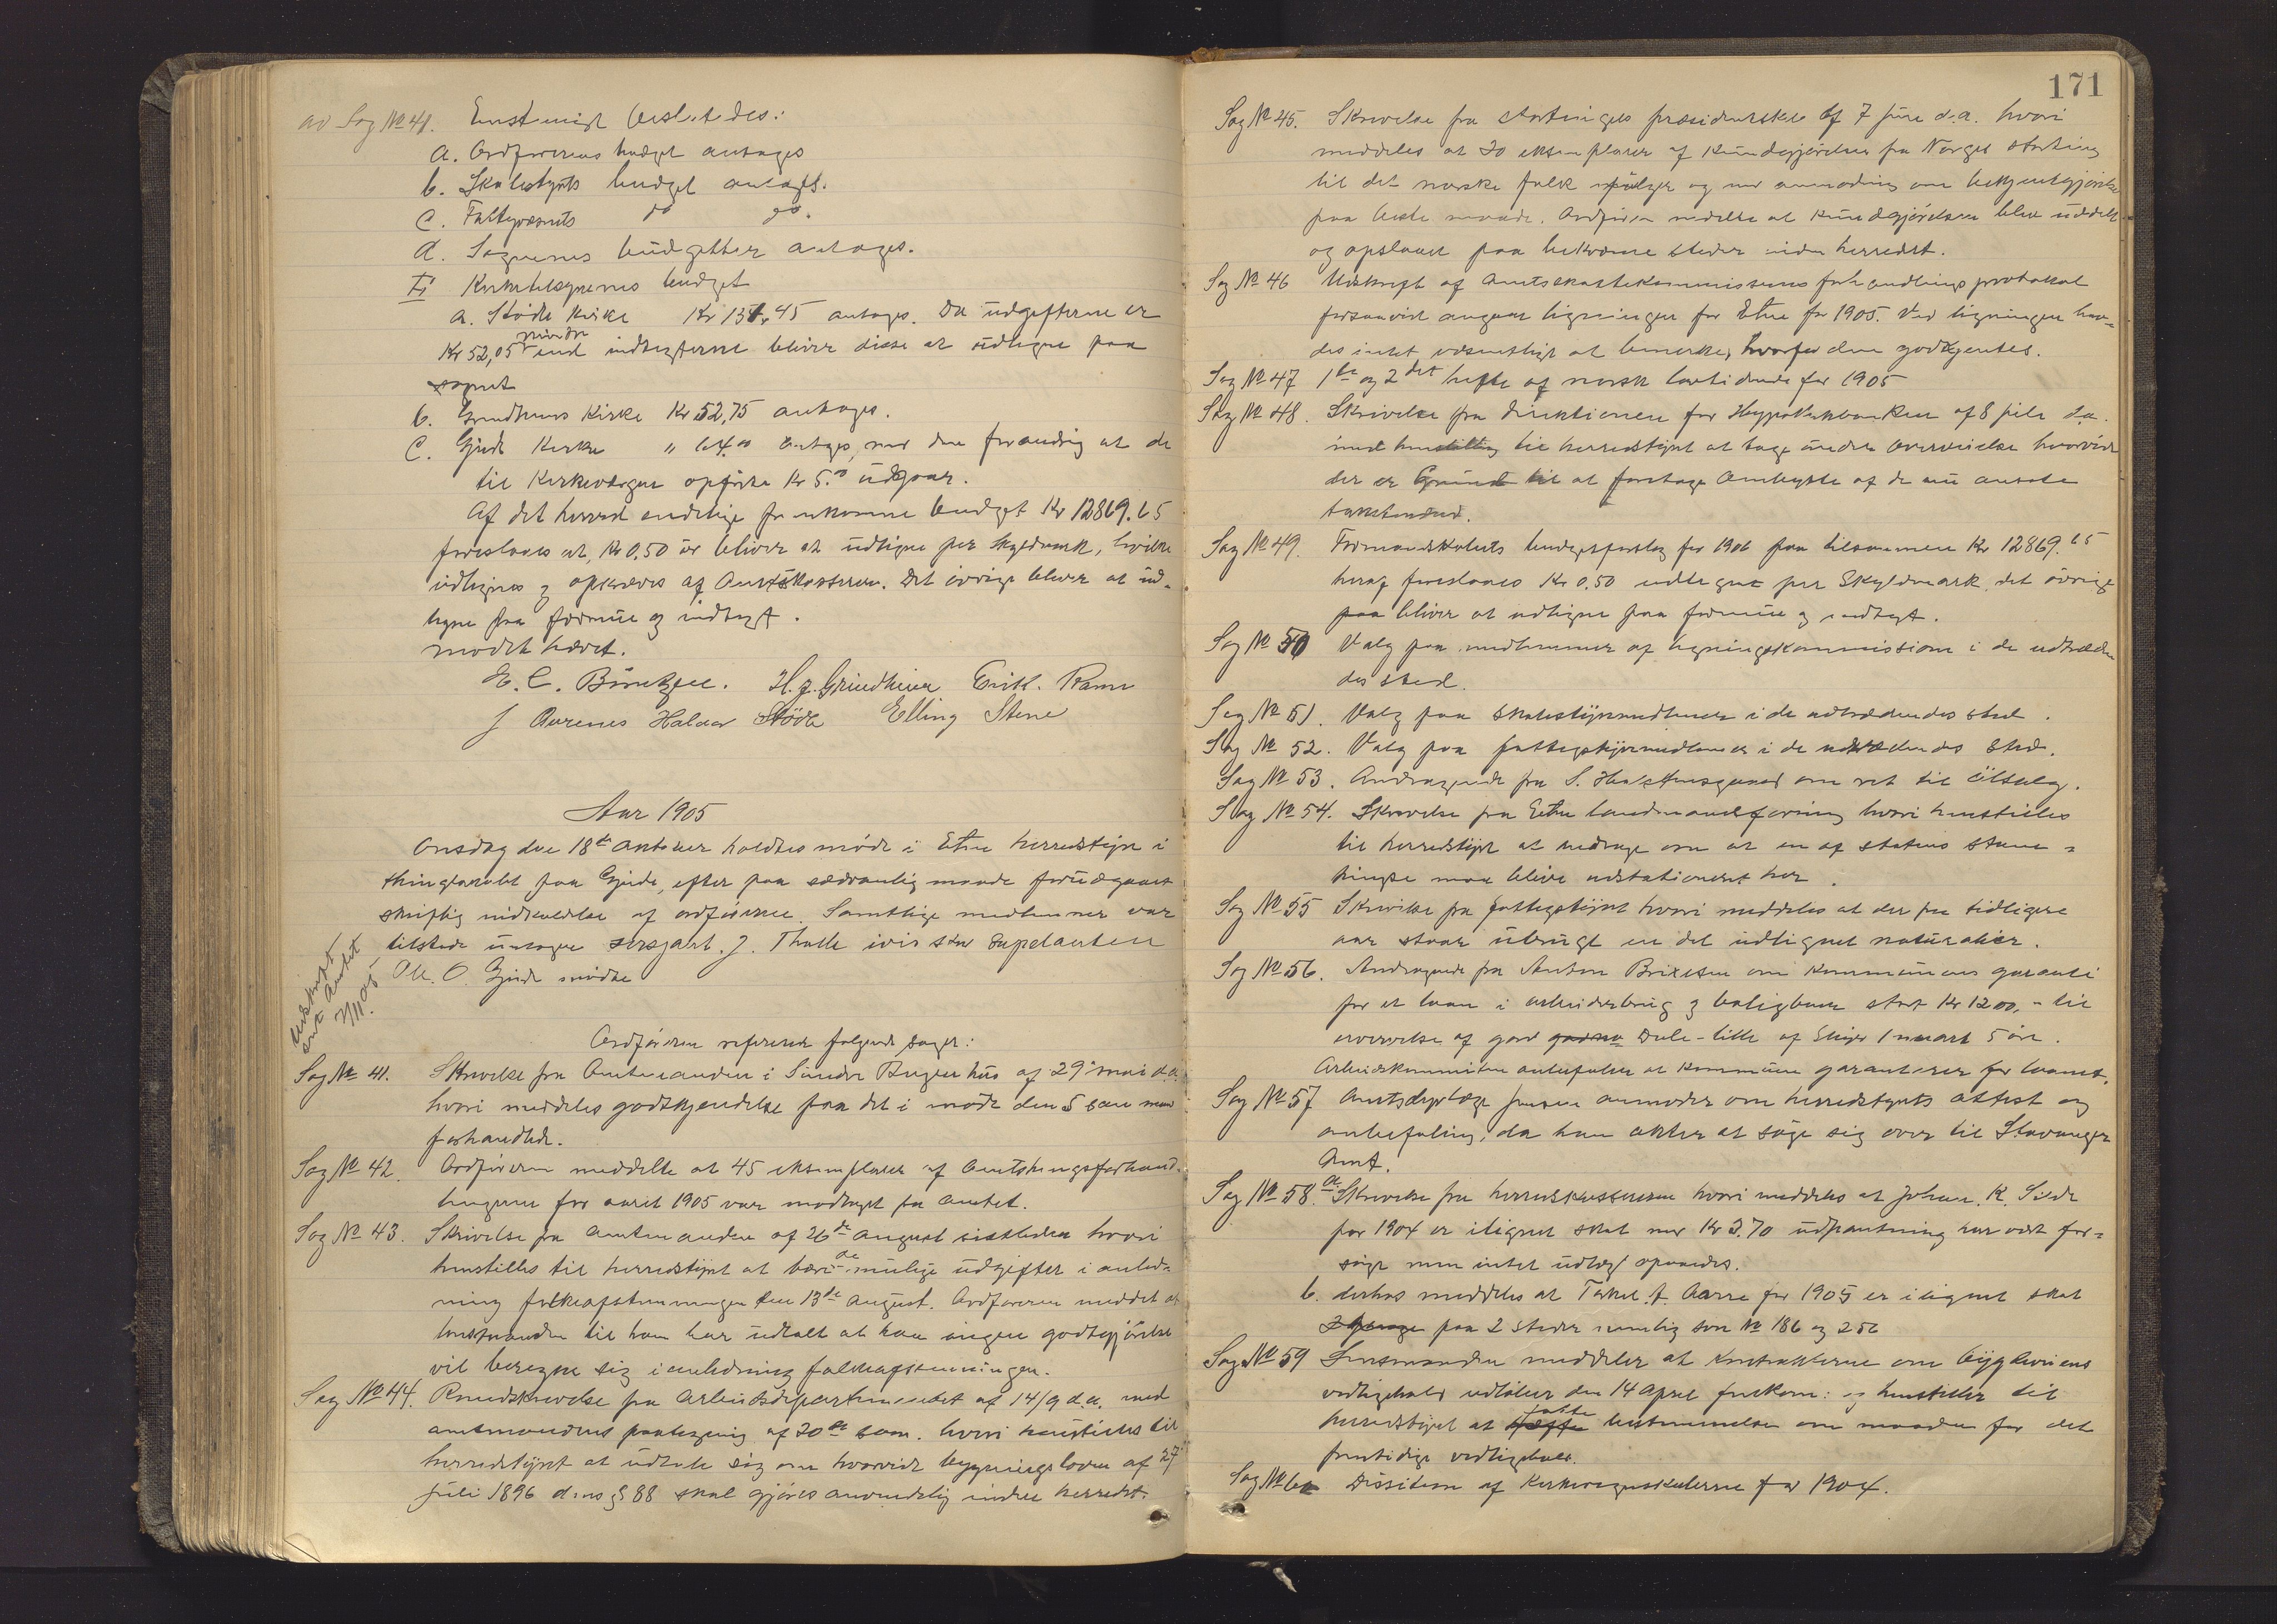 ad Sag № 41. Enstemigt beslutedes:
a. Ordførerens budget antages
b. Skolestyrets budget antages.
c. Fattigvæsnets do do.
d. Sognenes budgetter antages.
II Kirketilsynenes budget
a. Stødle Kirke Kr 131,45 antages. Da udgifterne er
Kr 52,05 mindre end indtægterne bliver disse at udligne paa
sognet
b. Grindheims Kirke Kr 52,75 antages.
c. Gjerde Kirke " 64.00 antages, med den forandring at de
til Kirkeværgen opførte Kr 5.00 udgaar.
Af det herred endelige fremkomne budget Kr 12869.65
foreslaaes at, Kr 0,50 ør bliver at udligne per Skyldmark, hvilke
udlignes og opkræves af Amtskassereren. Det øvrige bliver at ud-
ligne paa formue og indtægt.
mødet hævet.
H. J. Grindheim Erik. Ramn
Haldor Stödle Elling Stene
Aar 1905
Onsdag den 18de Oktober holdtes møde i Etne herredstyre i
thinglokalet paa Gjerde, efter paa sædvanlig maade forudgaaet
skriftlig indkaldelse af ordføreren. Samtlige medlemmer var
tilstede untagen sersjant. J. Thulle i vis sted suplanten
Ole. O. Gjerde mødte
Utskrift
sent Amtet
7/11.05
Ordføreren refererede følgende sager:
Sag № 41. Skrivelse fra Amtmanden i Søndre Bergenhus af 29 mai d.a.
hvori meddeles godkjendelse paa det i møde den 5 sam mnd
forhandlede.
Sag № 42. Ordføreren meddelte at 45 eksemplarer af Amtstingsforhand-
lingerne for aaret 1905 var modtaget fra amtet.
Sag № 43. Skrivelse fra Amtmanden af 26de August sistleden hvori
henstilles til herredstyret at bære de mulige udgifter i anled-
ning folkeafstemningen den 13de August. Ordføreren meddelt at
lensmanden til ham har udtalt at han ingen godtgjørelse
vil beregne sig i anledning folkeafstemningen.
Sag № 44. Rundskrivelse fra Arbeidsdepartementet af 14/9 d.a. med
amtmandens paategning af 20de sam. hvori henstilles til
herredstyret at udtale sig om hvorvidt bygningsloven af 27
juli 1896 dens § 88 skal gjøres anvendelig inden herredet.
171
Sag № 45. Skrivelse fra stortingets præsidentskab af 7 june d.a. hvori
meddeles at 20 eksemplarer af Kundgjørelsen fra Norges storting
til det norske folk følger og med anmodning om bekjentgjørelse
paa beste maade. Ordføreren medelte at Kundgjørelsen blev uddelt
og opslaaet paa bekvæme steder inden herredet.
Sag № 46 Utskrift af Amtsskattekommissionens forhandlingsprotokol
forsaavidt angaar ligningen for Etne for 1905. Ved ligningen hav-
des intet væsentligt at bemerke, hvorfor den godkjentes.
Sag № 47 1te og 2det hefte af norsk lovtidende for 1905
Sag № 48. Skrivelse fra direktionen for Hypotekbanken af 8 juli d.a.
med henstilling til herredstyret at tage under overveielse hvorvidt
der er Grund til at foretage Ombytte af de nu ansatte
takstmænd.
Sag № 49. Formandskabets budgetforslag for 1906 paa tilsammen Kr 12869.65
heraf foreslaaes Kr 0,50 udlignet per Skyldmark, det øvrige
paa bliver at udligne paa formue og indtægt.
Sag № 50 Valg paa medlemmer af ligningskommissionen i de udtræden-
des sted.
Sag № 51. Valg paa skolestyremedlemer i de udtrædendes sted.
Sag № 52. Valg paa fattigstyremedlemer i de udtrædendes sted.
Sag № 53. Andragende fra S. om ret til ölsalg.
Sag № 54. Skrivelse fra Etne landmandsforening hvori henstilles
til herredstyret at andrage om at en af statens stam-
hingste maa blive udstationeret her.
Sag № 55 Skrivelse fra fattigstyret hvori meddeles at der fra tidligere
aar staar ubrugt en del udlignet naturalier.
Sag № 56. Andragende fra Anton Brixsen om Kommunens garanti
for et laan i arbeiderbrug og boligbank stort Kr 1200,- til
erværvelse af gard Dale-lille af Skyld 1 mark 5 öre.
Arbeidskommiteen anbefaler at Kommune garanterer for laanet.
Sag № 57 Amtsdyrlæge Jensen anmoder om herredstyrets attest og
anbefaling, da han akter at søge sig over til Stavanger
Amt.
Sag № 58. a. Skrivelse fra herredskassereren hvori meddeles at Johan. K. Silde
for 1904 er ilignet skat med Kr 3.70 udpantning har vært for-
søgt men intet udlæg opnaades.
b. derhos meddeles at Torkel. A. Aarre for 1905 er ilignet skat
paa 2 steder nemlig som № 186 og 256
Sag № 59 Lensmanden meddeler at kontrakterne om bygdeveiens
vedligehold udløber den 14 april førstkom: og henstiller til
herredstyret at fatte bestemmelse om maaden for det
fremtidige vedligehold.
Sag № 60 Desision af Kirkeregnskaberne for 1904.